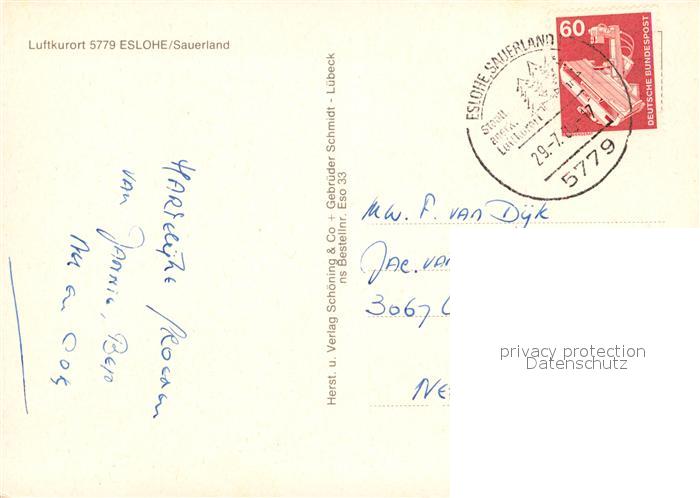 Luftkurort 5779 ESLOHE/Sauerland
Hartelijke Groeten
van Jannie, Bep
Herst. u. Verlag Schöning & Co + Gebrüder Schmidt - Lübeck
ns Bestellnr. Eso 33
ESLOHE, SAUERLAND
Staatl.
anerk.
Luftkurort
29.-7.
5779
60
DEUTSCHE BUNDESPOST
Mw. F. van Dijk
Jac. van
3067
Ne
privacy protection
Datenschutz